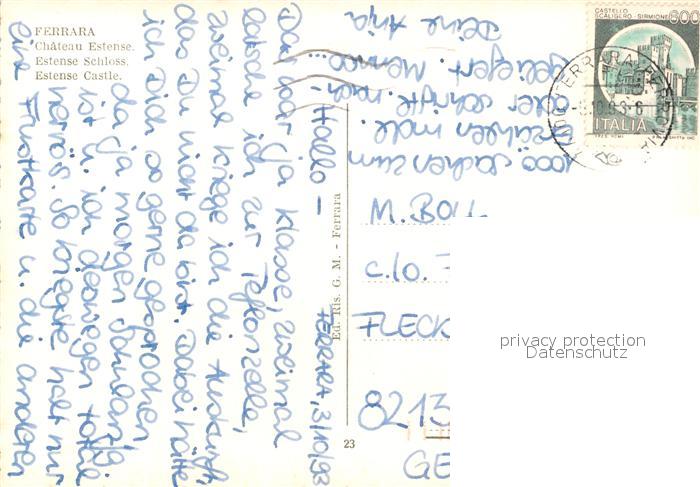 FERRARA
Château Estense.
Estense Schloss.
Estense Castle.
FERRARA, 3/10/93
Hallo –
Das war ja klasse, zweimal
latsche ich zur Telefonzelle,
zweimal kriege ich die Auskunft
das Du nicht da bist. Dabei hätte
ich Dich so gerne gesprochen,
da ja morgen Schulanfg
ist u. ich deswegen total
nervös. So kriegste halt nur
eine Frustkarte u. die anderen
1000 Sachen zum
Erzählen mdl.
oder schriftl. nach-
geliefert.
Deine Anja
Ed. Ris. G. M. - Ferrara
23
CASTELLO
SCALIGERO - SIRMIONE
600
ITALIA
FERRARA
M. BO
c/o.
FLECK
8213
GE
privacy protection
Datenschutz